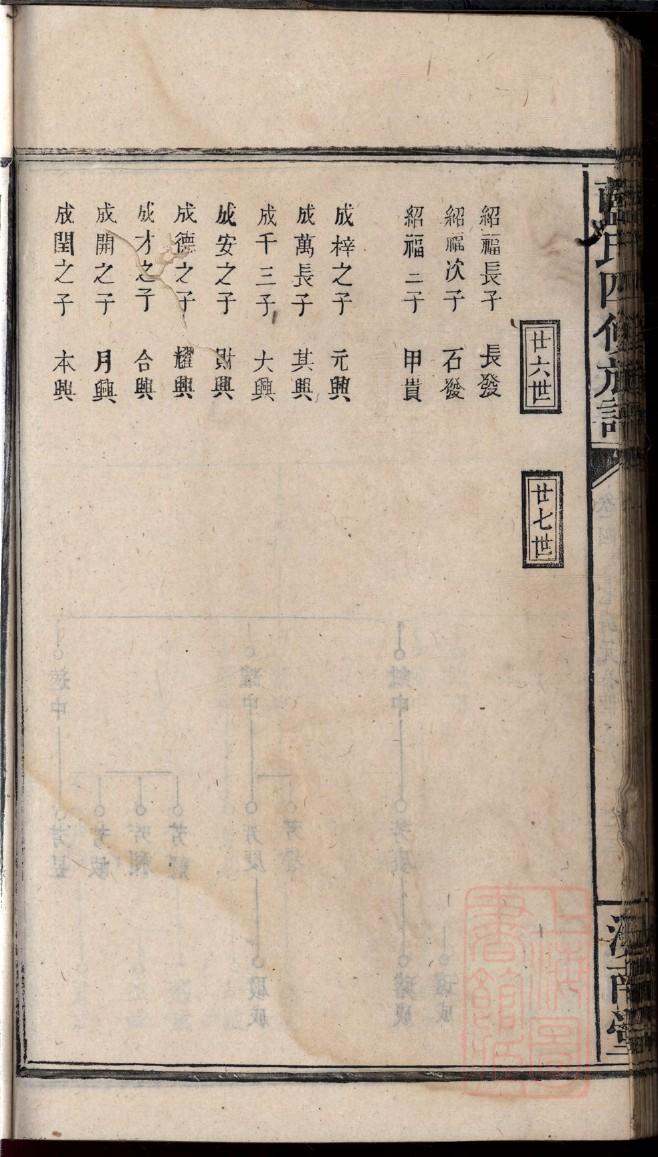 藍氏四修族譜
汝南堂
廿六世
廿七世
紹福長子 長發
紹福次子 石發
紹福三子 甲貴
成梓之子 元興
成萬長子 其興
成千三子 大興
成安之子 財興
成德之子 耀興
成才之子 合興
成開之子 月興
成閏之子 本興
上海圖書館藏